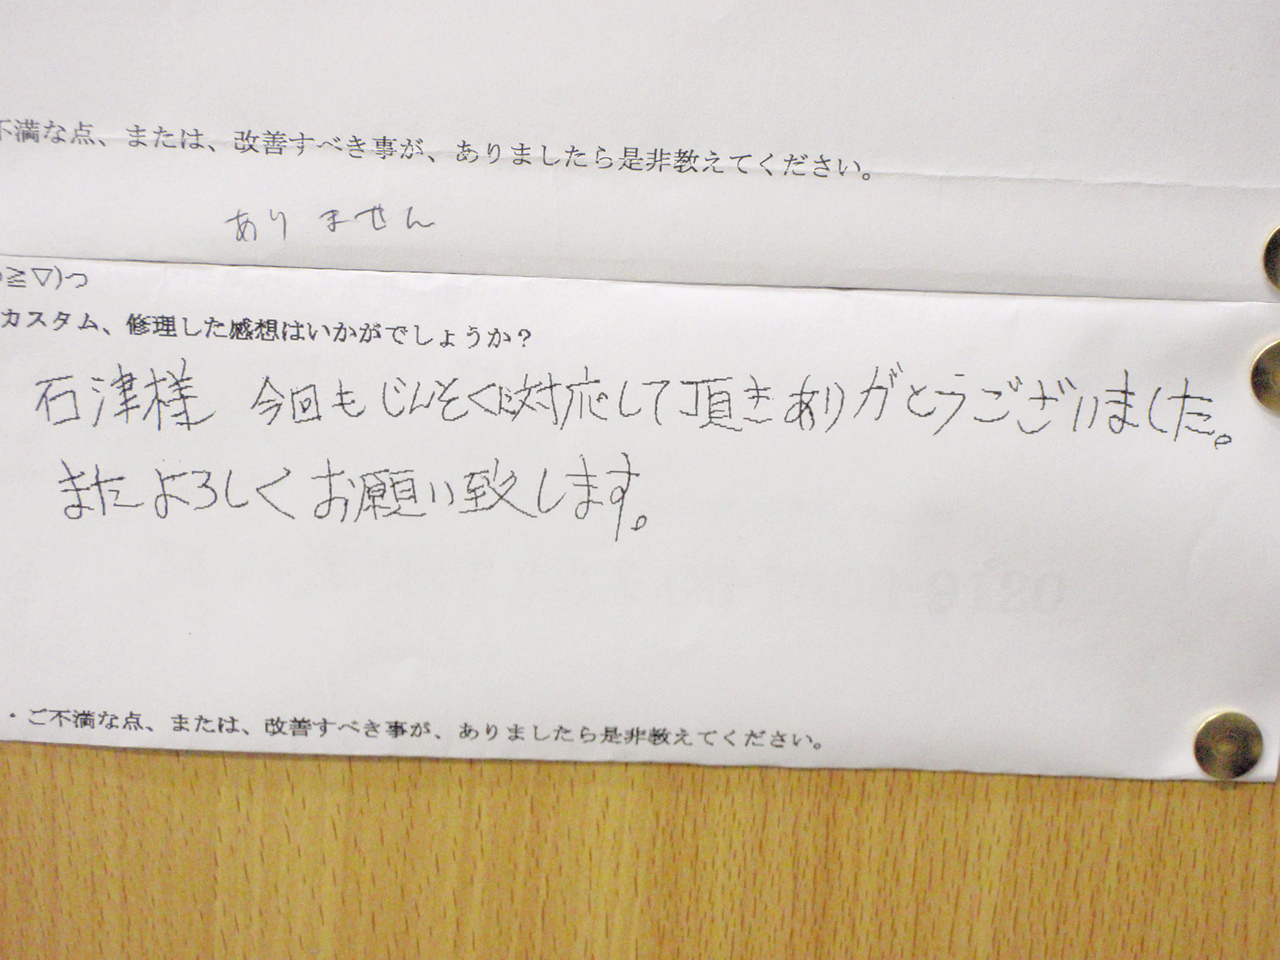 不満な点、または、改善すべき事が、ありましたら是非教えてください。
ありません
≧▽)っ
カスタム、修理した感想はいかがでしょうか？
石津様 今回もじんそくに対応して頂きありがとうございました。
またよろしくお願い致します。
・ご不満な点、または、改善すべき事が、ありましたら是非教えてください。